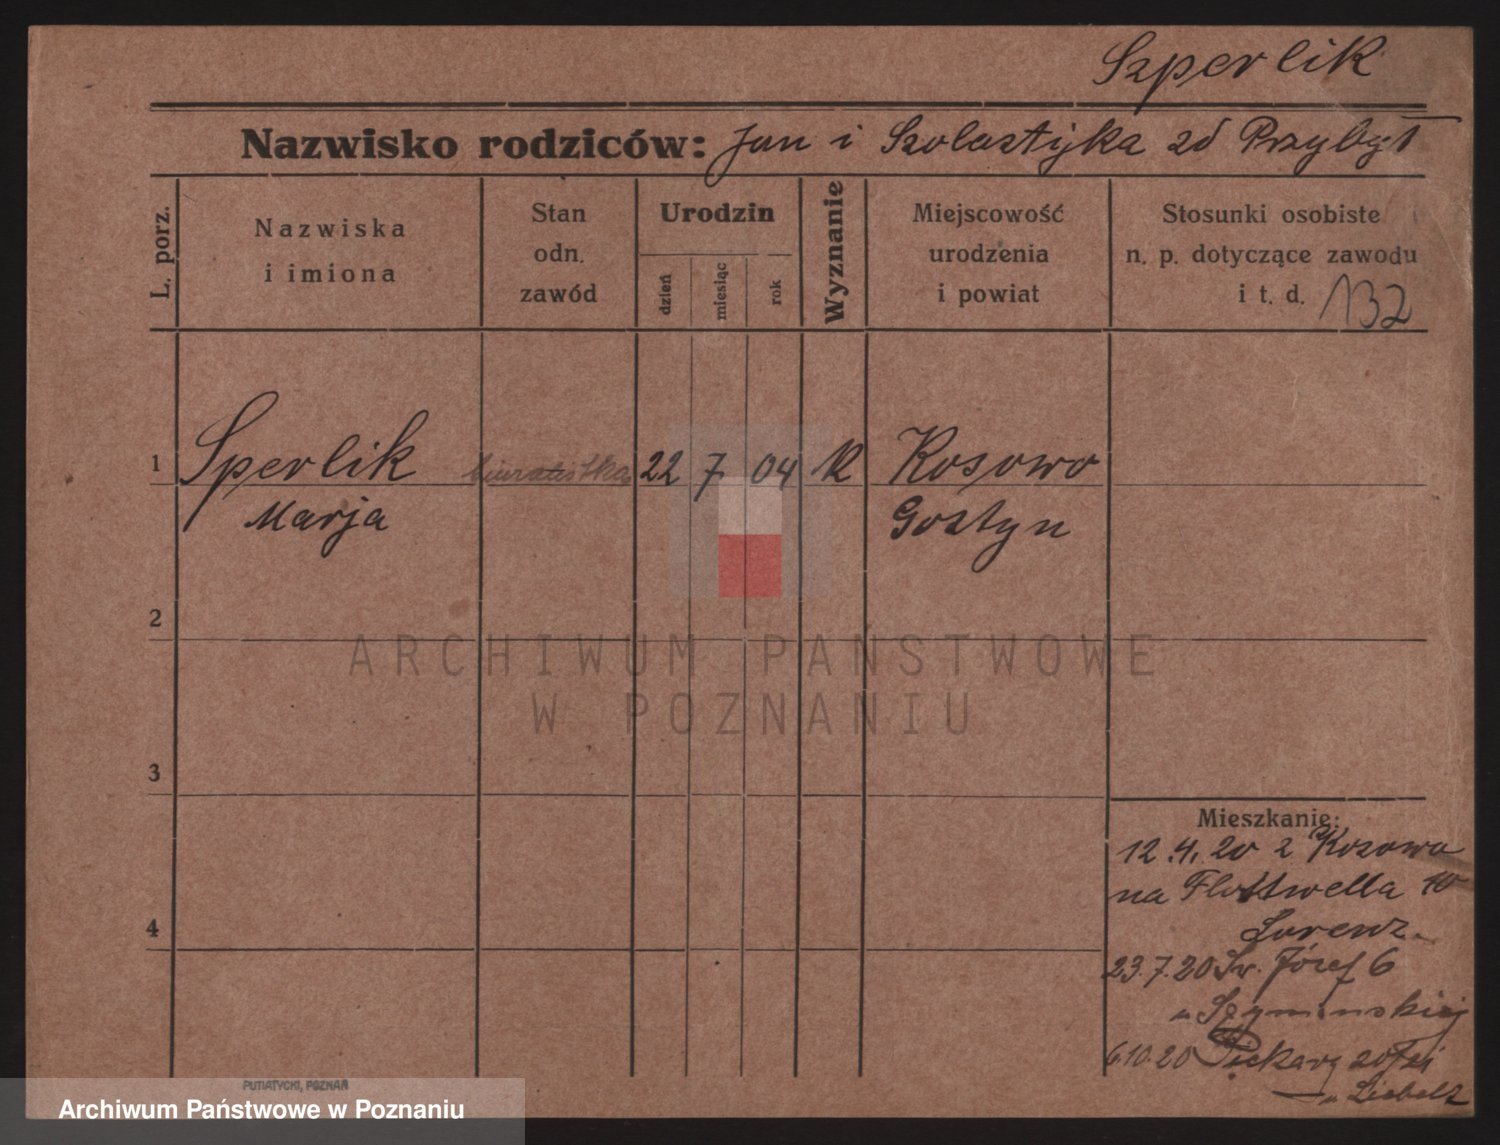 Szperlik
Nazwisko rodziców: Jan i Szolastyka zd Przybył
L. porz.
Nazwiska
i imiona
Stan
odn.
zawód
Urodzin
dzień
miesiąc
rok
Wyznanie
Miejscowość
urodzenia
i powiat
Stosunki osobiste
n. p. dotyczące zawodu
i t. d. 132
1 Sperlik biuralistka 22 7 04 k Kosowo
Marja Gostyn
2
ARCHIWUM PAŃSTWOWE
W POZNANIU
3
4
Mieszkanie:
12.4.20 z Kosowa
na Flottwella 10
Lorenz
23.7.20 Św. Józef 6
u Szyminskiej
6.10.20 Piekary
u
PUTIATYCKI, POZNAŃ
Archiwum Państwowe w Poznaniu